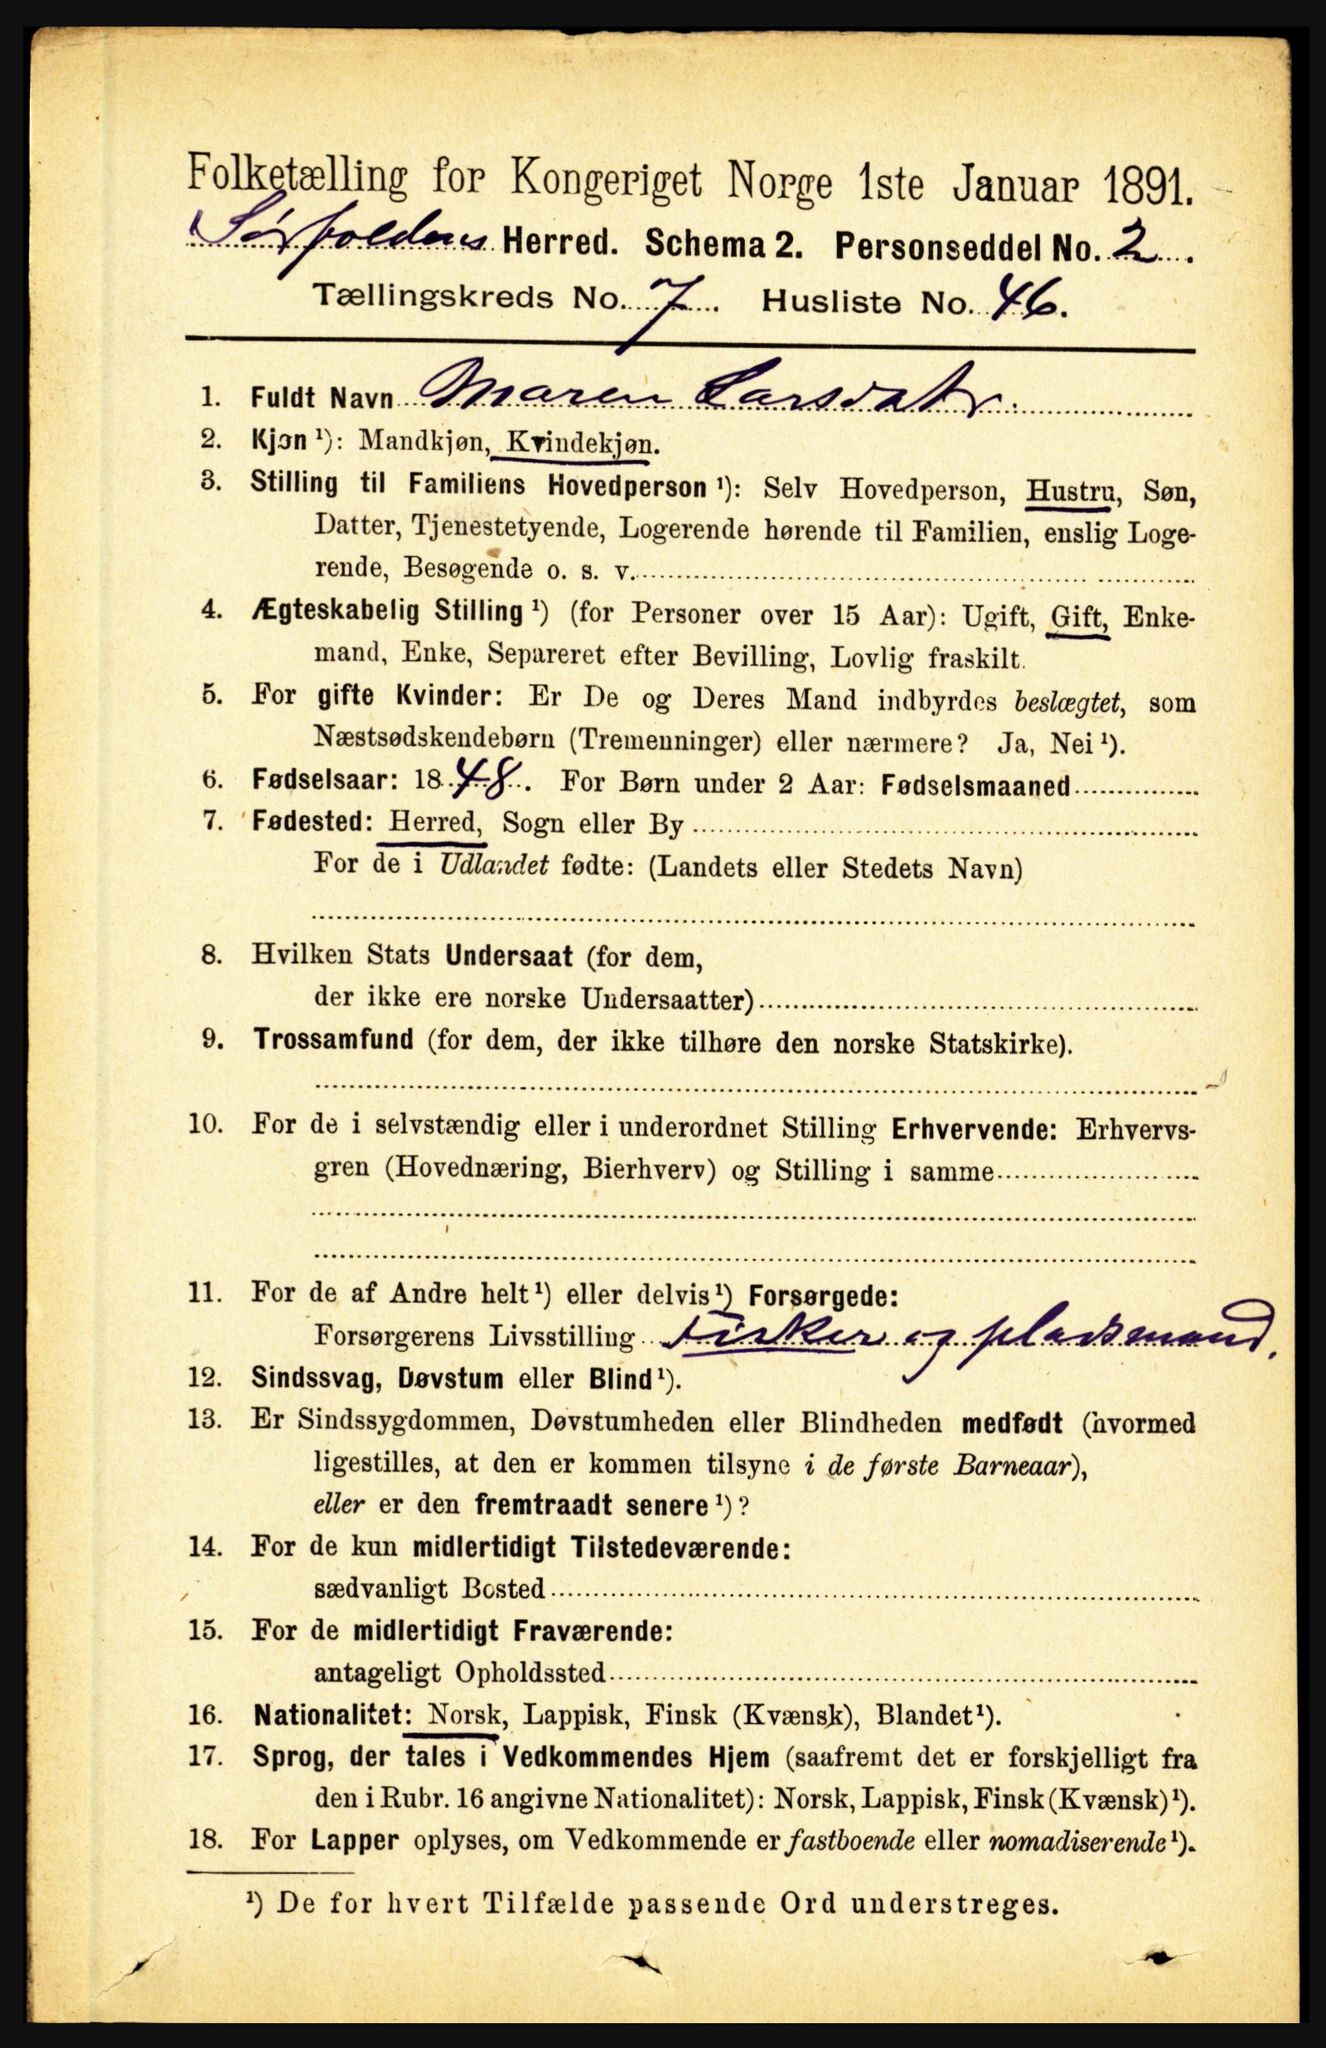 Folketælling for Kongeriget Norge 1ste Januar 1891.
Sørfoldens Herred. Schema 2. Personseddel No. 2.
Tællingskreds No. 7. Husliste No. 46.
1. Fuldt Navn Maren Larsdatr.
2. Kjøn ¹): Mandkjøn, Kvindekjøn.
3. Stilling til Familiens Hovedperson ¹): Selv Hovedperson, Hustru, Søn,
Datter, Tjenestetyende, Logerende hørende til Familien, enslig Loge-
rende, Besøgende o. s. v.
4. Ægteskabelig Stilling ¹) (for Personer over 15 Aar): Ugift, Gift, Enke-
mand, Enke, Separeret efter Bevilling, Lovlig fraskilt.
5. For gifte Kvinder: Er De og Deres Mand indbyrdes beslægtet, som
Næstsødskendebørn (Tremenninger) eller nærmere? Ja, Nei ¹).
6. Fødselsaar: 1848. For Børn under 2 Aar: Fødselsmaaned
7. Fødested: Herred, Sogn eller By
For de i Udlandet fødte: (Landets eller Stedets Navn)
8. Hvilken Stats Undersaat (for dem,
der ikke ere norske Undersaatter)
9. Trossamfund (for dem, der ikke tilhøre den norske Statskirke).
10. For de i selvstændig eller i underordnet Stilling Erhvervende: Erhvervs-
gren (Hovednæring, Bierhverv) og Stilling i samme
11. For de af Andre helt ¹) eller delvis ¹) Forsørgede:
Forsørgerens Livsstilling Fisker og pladsmand.
12. Sindssvag, Døvstum eller Blind ¹).
13. Er Sindssygdommen, Døvstumheden eller Blindheden medfødt (hvormed
ligestilles, at den er kommen tilsyne i de første Barneaar),
eller er den fremtraadt senere ¹)?
14. For de kun midlertidigt Tilstedeværende:
sædvanligt Bosted
15. For de midlertidigt Fraværende:
antageligt Opholdssted
16. Nationalitet: Norsk, Lappisk, Finsk (Kvænsk), Blandet ¹).
17. Sprog, der tales i Vedkommendes Hjem (saafremt det er forskjelligt fra
den i Rubr. 16 angivne Nationalitet): Norsk, Lappisk, Finsk (Kvænsk) ¹).
18. For Lapper oplyses, om Vedkommende er fastboende eller nomadiserende ¹).
¹) De for hvert Tilfælde passende Ord understreges.